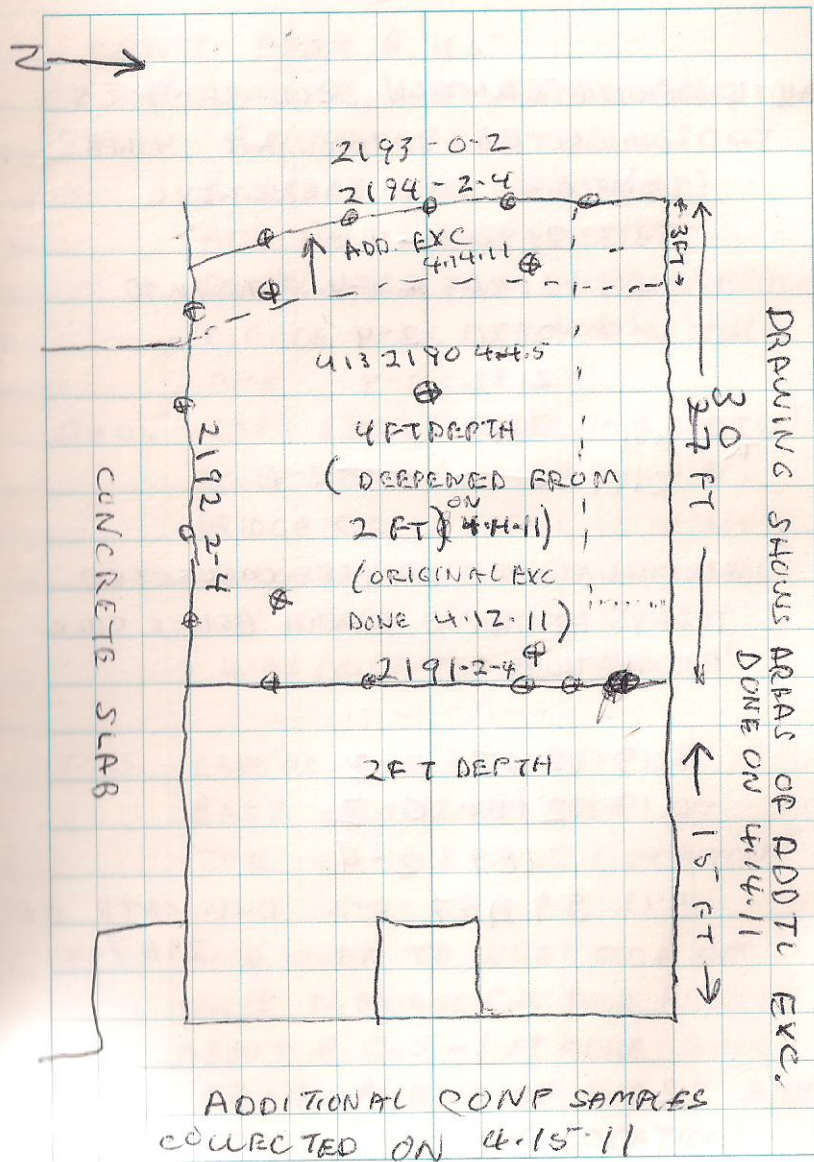 N
2193-0-2
2194-2-4
ADD. EXC
4.14.11
3FT
413-2190 4-4.5
4 FT DEPTH
(DEEPENED FROM
ON
2 FT) 4.14.11)
(ORIGINAL EXC
DONE 4.12.11)
2191-2-4
2192 2-4
CONCRETE SLAB
30
27 FT
2 FT DEPTH
15 FT
DRAWING SHOWS AREAS OF ADDTL EXC.
DONE ON 4.14.11
ADDITIONAL CONF SAMPLES
COLLECTED ON 4.15.11